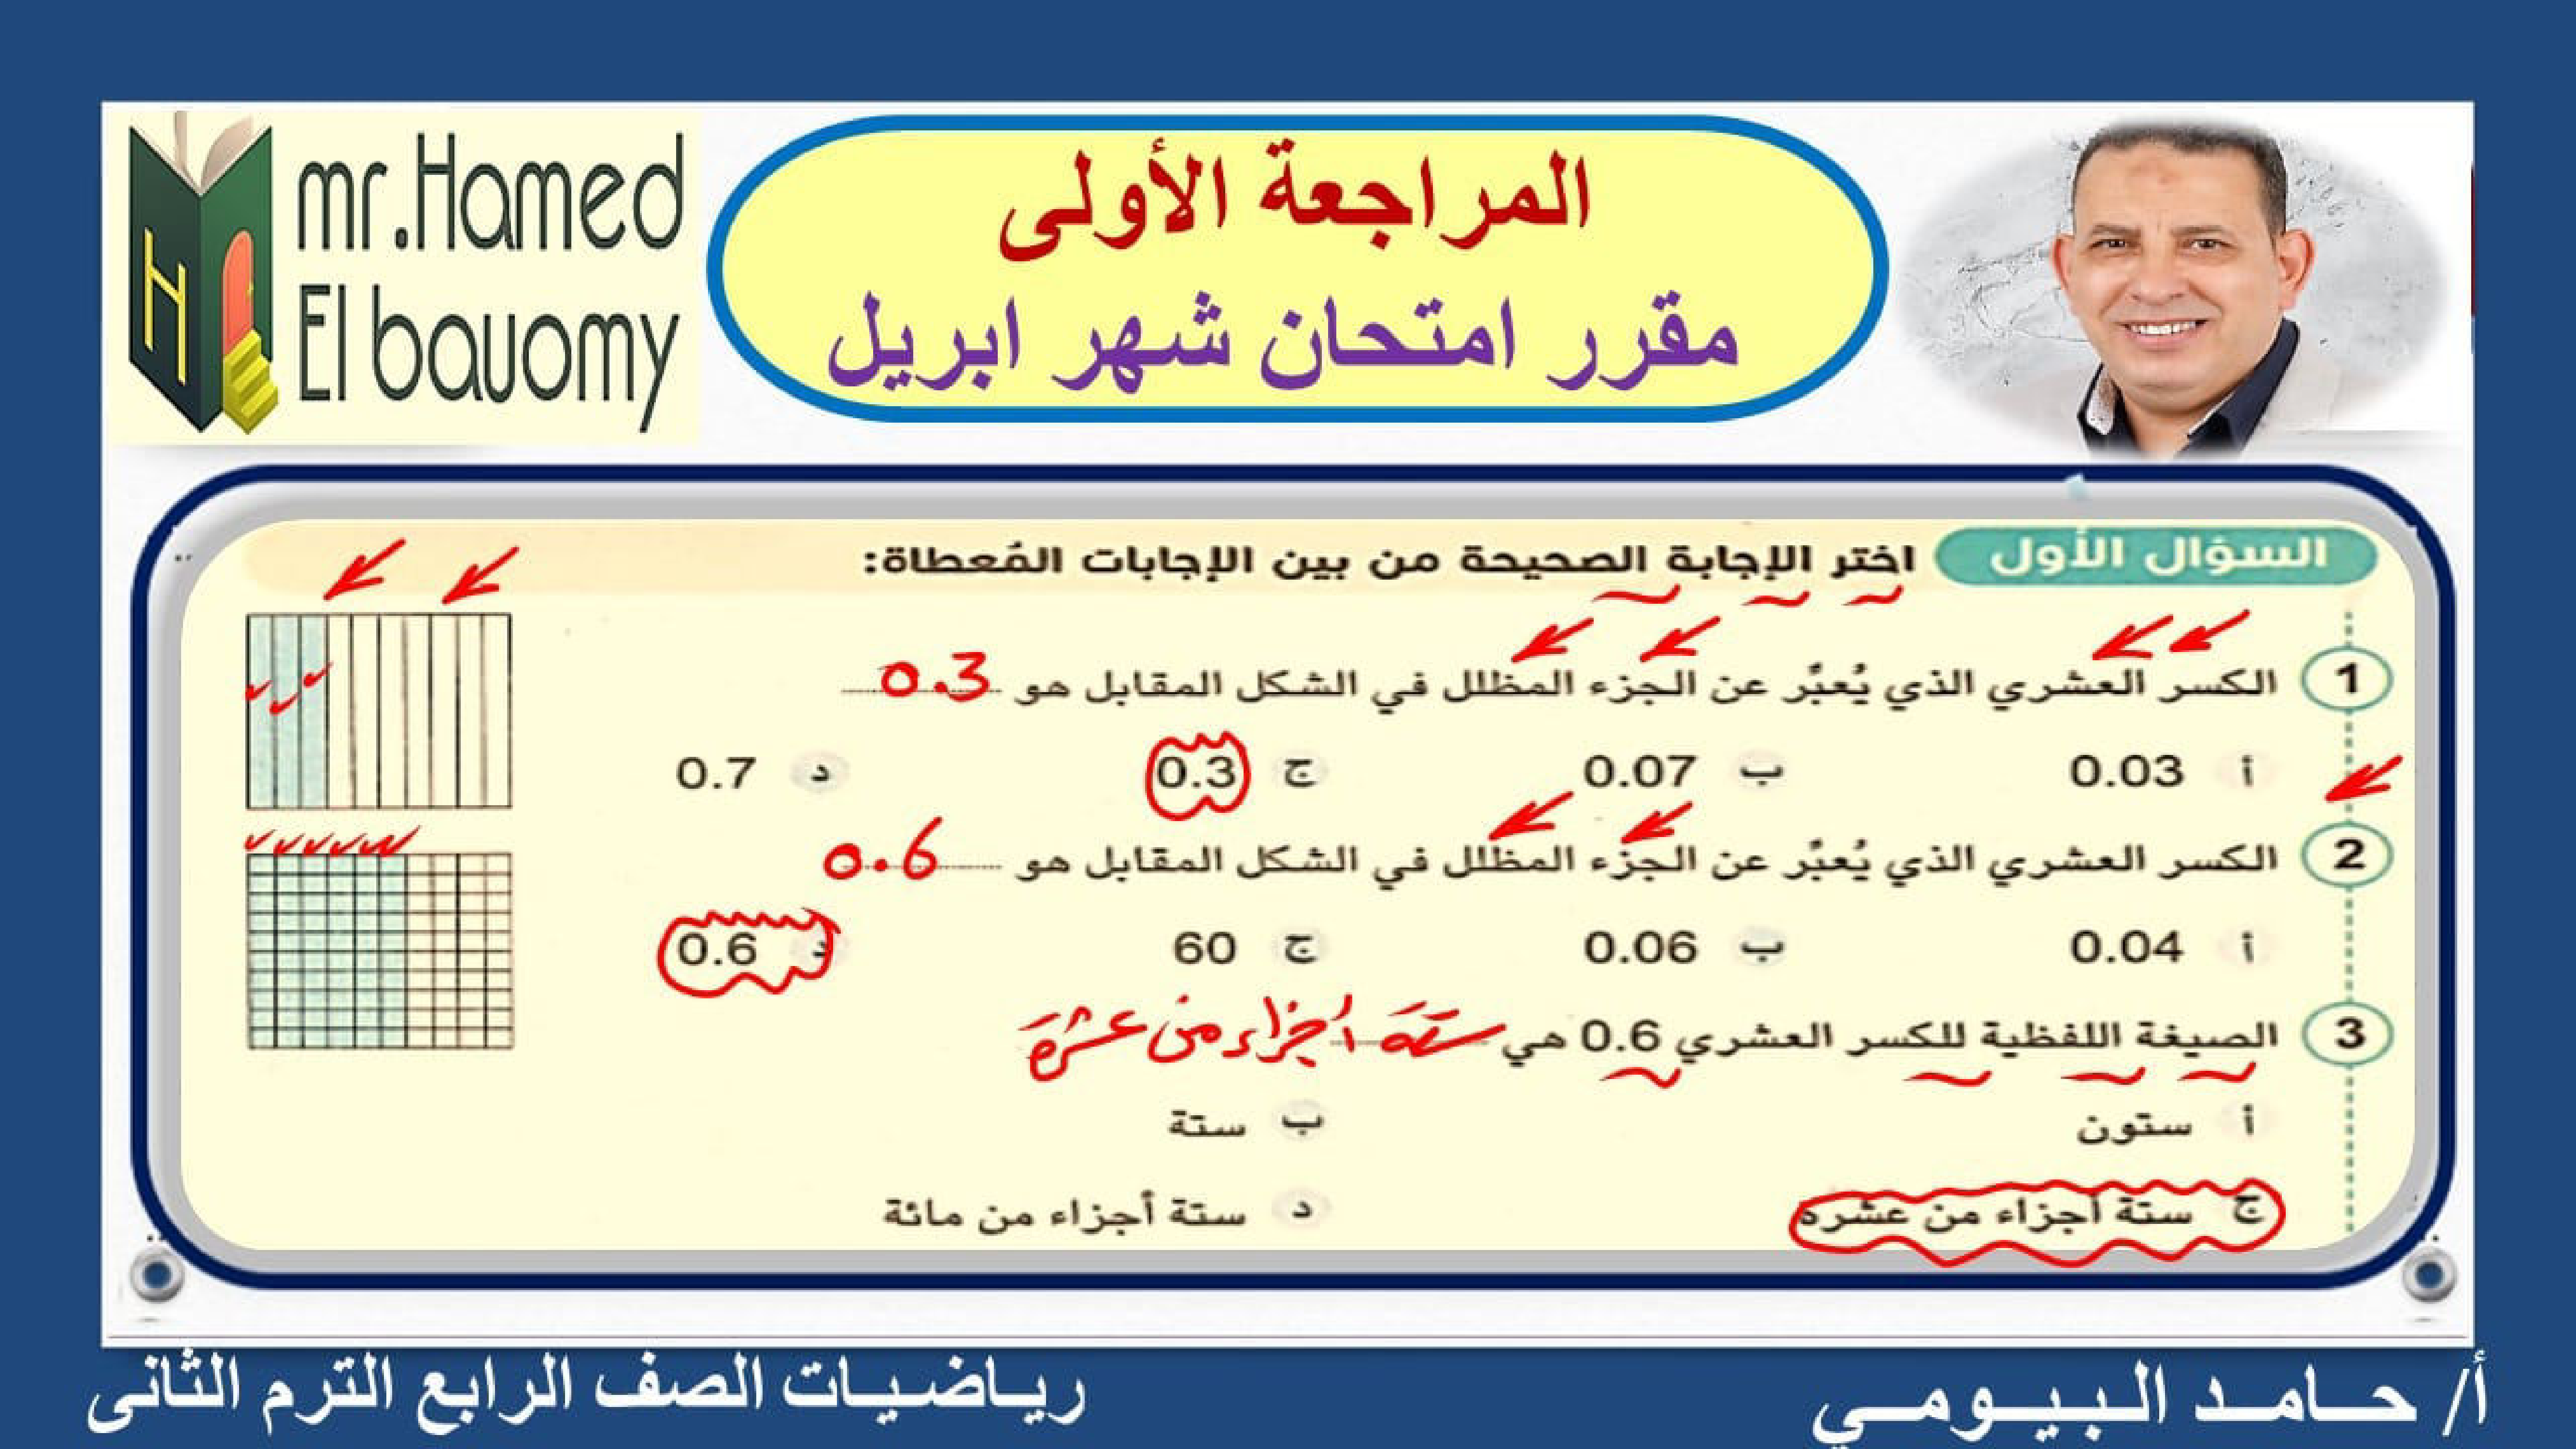 mr.Hamed
El bauomy
المراجعة الأولى
مقرر امتحان شهر ابريل
السؤال الأول اختر الإجابة الصحيحة من بين الإجابات المُعطاة:
1 الكسر العشري الذي يُعبِّر عن الجزء المظلل في الشكل المقابل هو 0.3
أ 0.03 ب 0.07 ج 0.3 د 0.7
2 الكسر العشري الذي يُعبِّر عن الجزء المظلل في الشكل المقابل هو 0.6
أ 0.04 ب 0.06 ج 60 د 0.6
3 الصيغة اللفظية للكسر العشري 0.6 هي ستة أجزاء من عشرة
أ ستون ب ستة
ج ستة أجزاء من عشرة د ستة أجزاء من مائة
أ/ حامد البيومي
رياضيات الصف الرابع الترم الثانى
H